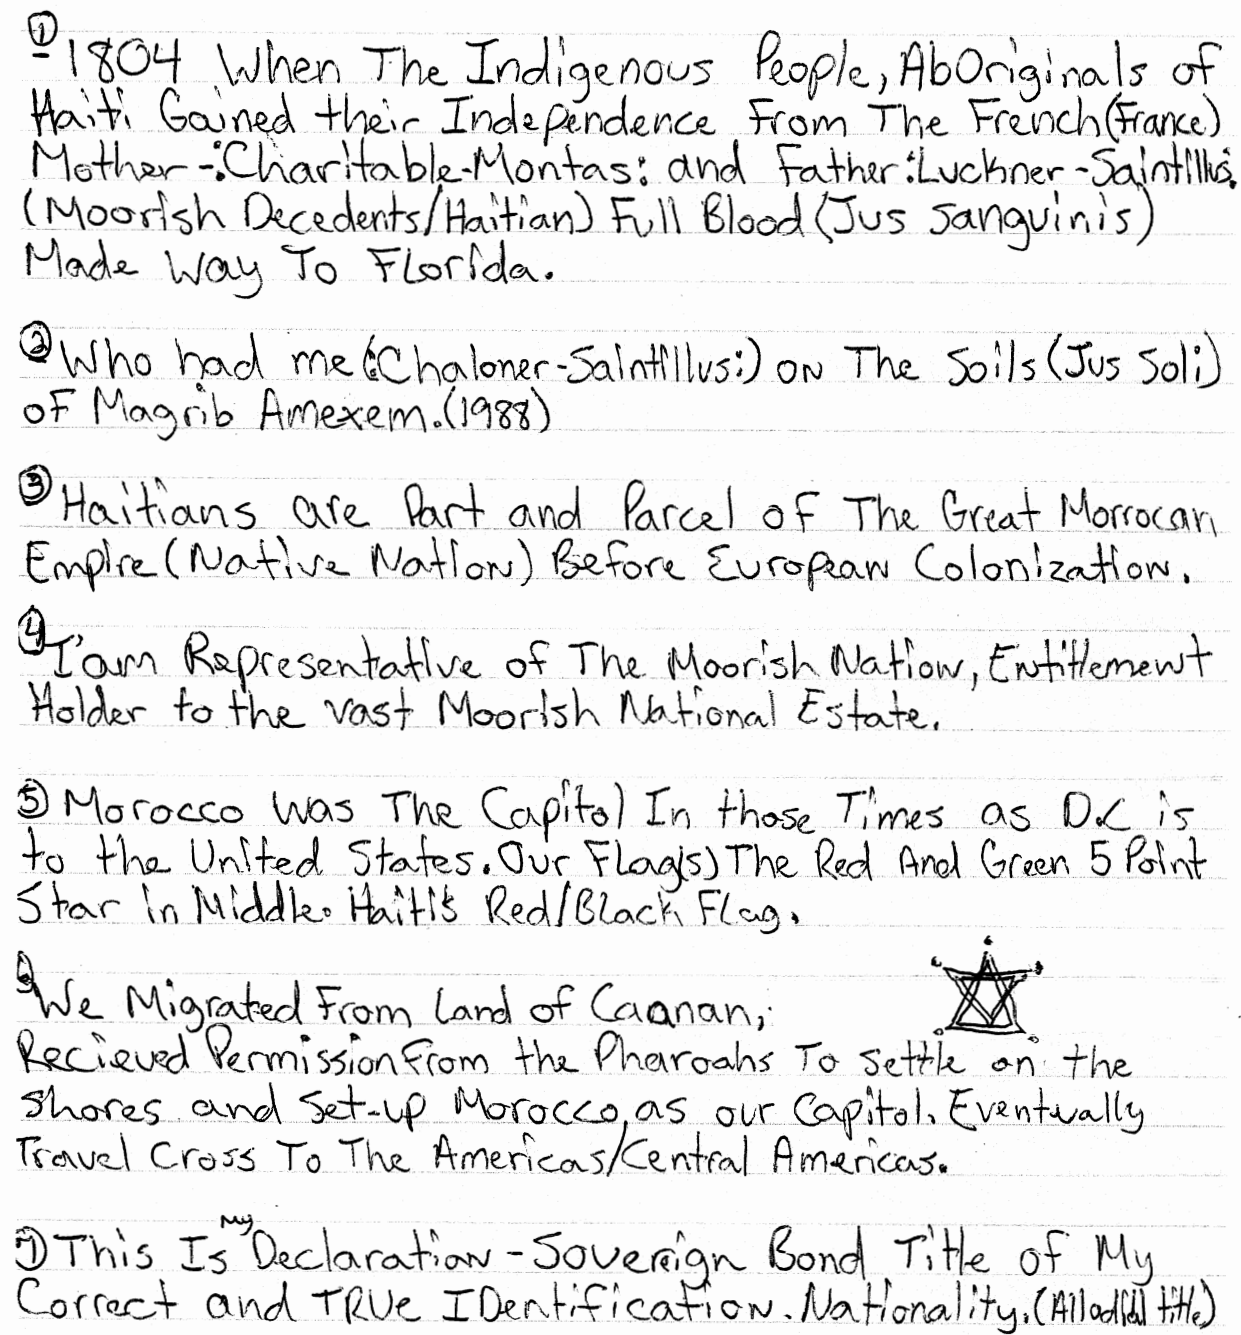 ① 1804 When The Indigenous People, AbOriginals of
Haiti Gained their Independence From The French (France)
Mother -:Charitable-Montas: and Father:Luckner-Saintillus.
(Moorish Decedents/Haitian) Full Blood (Jus Sanguinis)
Made Way To Florida.
② Who had me (:Chaloner-Saintillus:) on The Soils (Jus Soli)
of Magrib Amexem. (1988)
③ Haitians are Part and Parcel of The Great Morrocan
Empire (Native Nation) Before European Colonization.
④ I'am Representative of The Moorish Nation, Entitlement
Holder to the vast Moorish National Estate.
⑤ Morocco was The Capitol In those Times as D.C is
to the United States. Our Flag(s) The Red And Green 5 Point
Star in Middle. Haiti's Red/Black Flag.
⑥ We Migrated From Land of Caanan,
Recieved Permission From the Pharoahs To settle on the
shores and set-up Morocco, as our Capitol. Eventually
Travel Cross To The Americas/Central Americas.
⑦ This Is My Declaration - Sovereign Bond Title of My
Correct and TRUe IDentification. Nationality. (Allodial title)